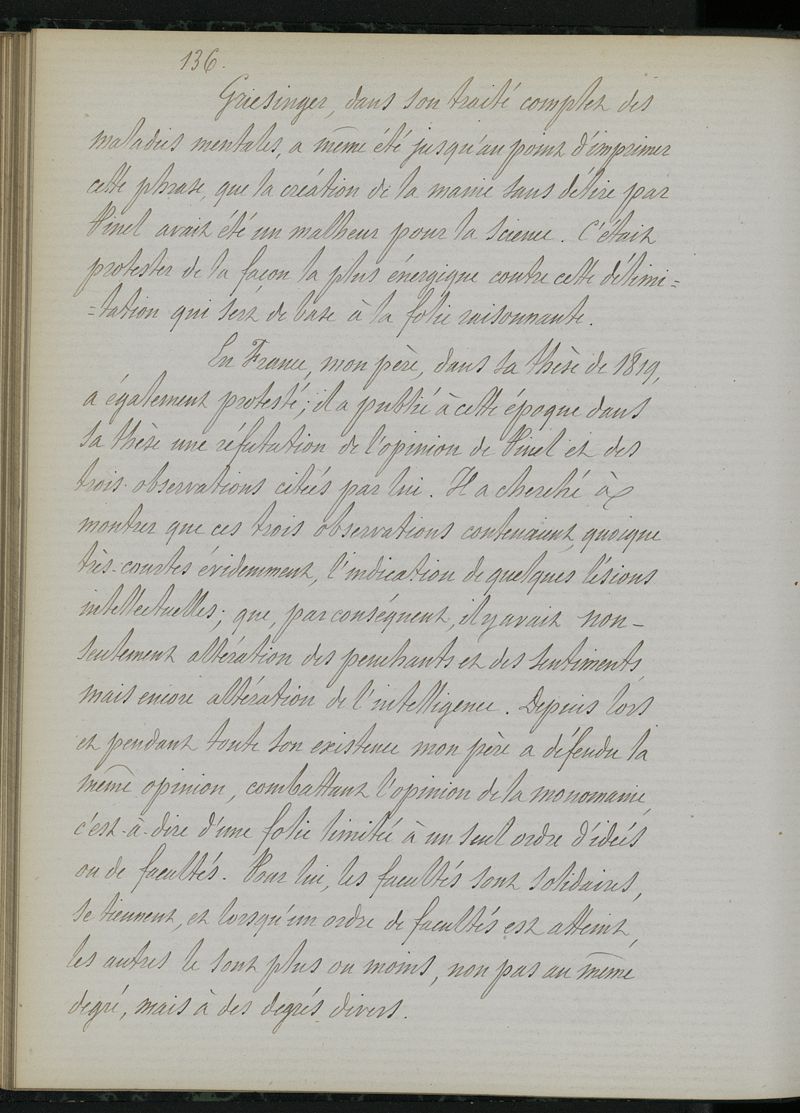 136.
Griesinger, dans son traité complet des
maladies mentales, a même été jusqu'au point d'imprimer
cette phrase, que la création de la manie sans délire par
Pinel avait été un malheur pour la science. C'était
protester de la façon la plus énergique contre cette délimi=
=tation qui sert de base à la folie raisonnante.
En France, mon père, dans sa thèse de 1819,
a également protesté; il a publié à cette époque dans
sa thèse une réfutation de l'opinion de Pinel et des
trois observations citées par lui. Il a cherché à
montrer que ces trois observations contenaient, quoique
très-courtes évidemment, l'indication de quelques lésions
intellectuelles; que, par conséquent, il y avait non-
seulement altération des penchants et des sentiments,
mais encore altération de l'intelligence. Depuis lors
et pendant toute son existence mon père a défendu la
même opinion, combattant l'opinion de la monomanie,
c'est-à-dire d'une folie limitée à un seul ordre d'idées
ou de facultés. Pour lui, les facultés sont solidaires,
se tiennent, et lorsqu'un ordre de facultés est atteint,
les autres le sont plus ou moins, non pas au même
degré, mais à des degrés divers.